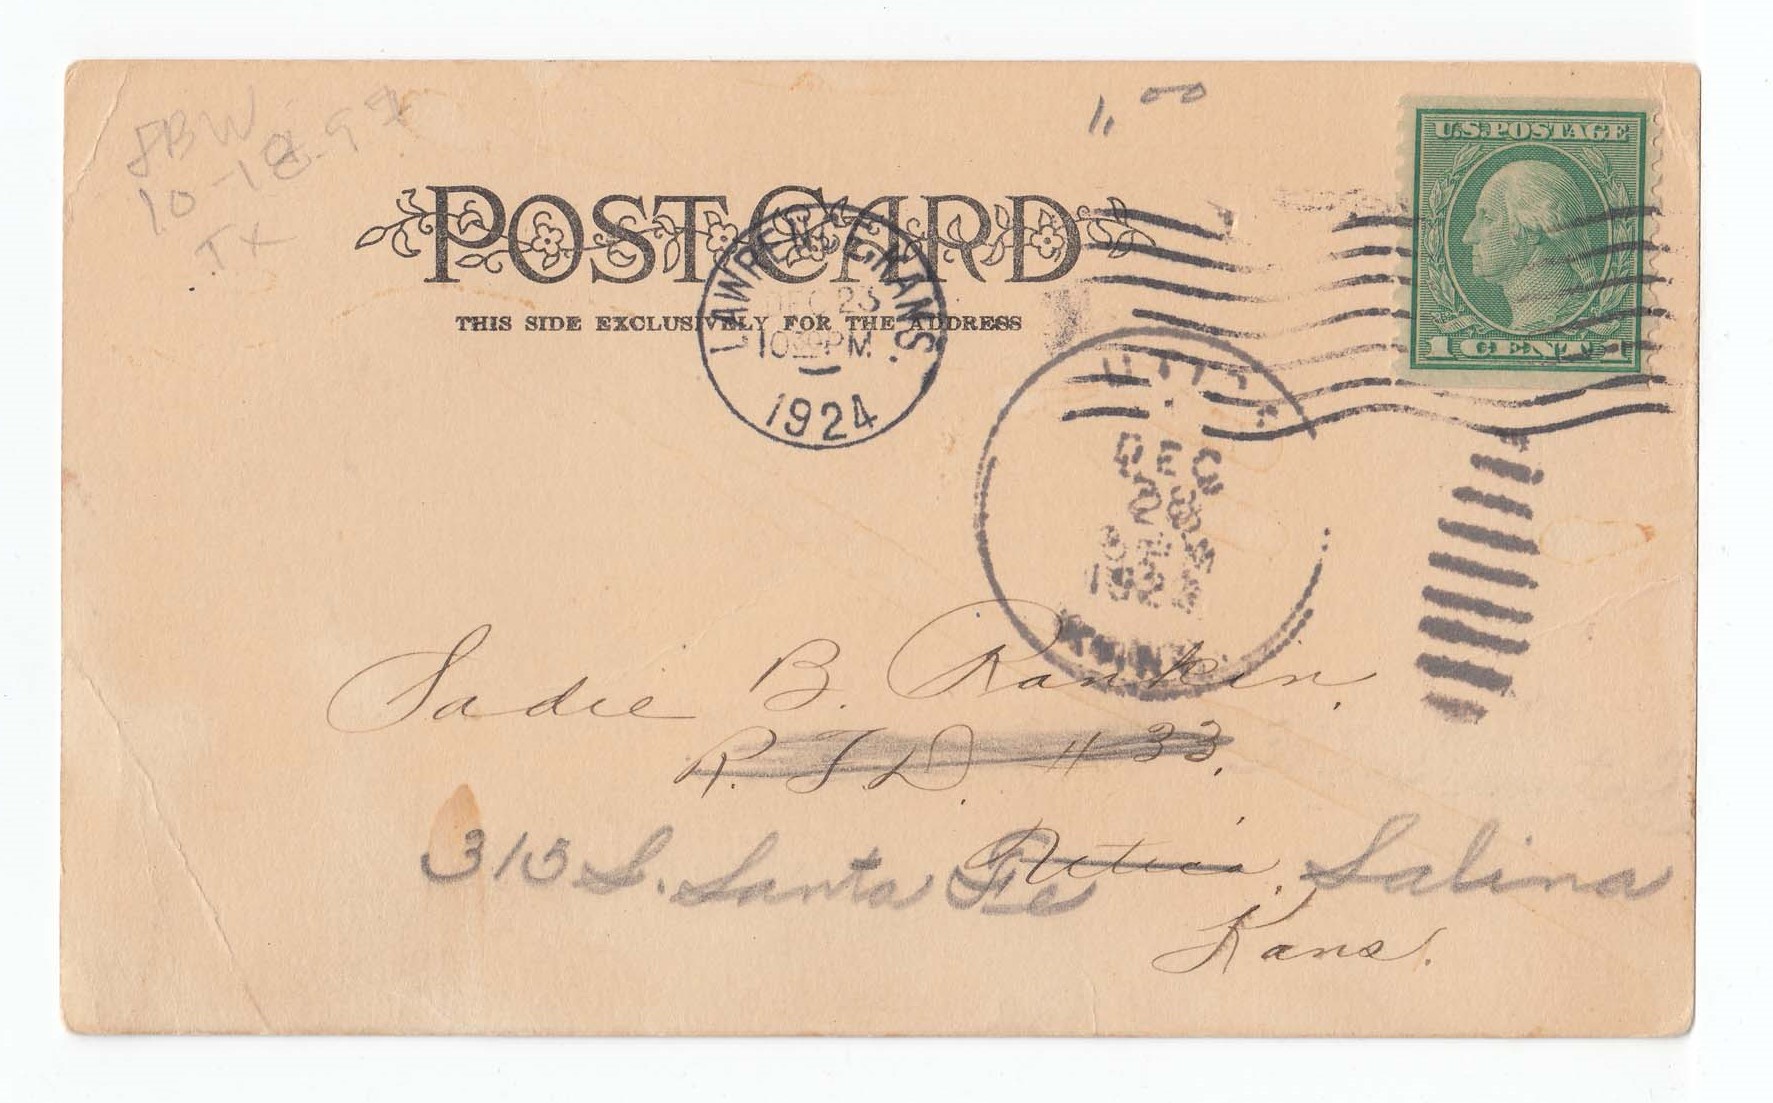 JBW
10-18-97
TX
1.00
U.S. POSTAGE
1 CENT 1
POST CARD
THIS SIDE EXCLUSIVELY FOR THE ADDRESS
LAWRENCE, KANS.
DEC 23
10 PM
1924
UTICA
DEC
28
192
KANS
Sadie B. Rankin.
R.F.D. # 33.
Utica,
315 S. Santa Fe Salina
Kans.